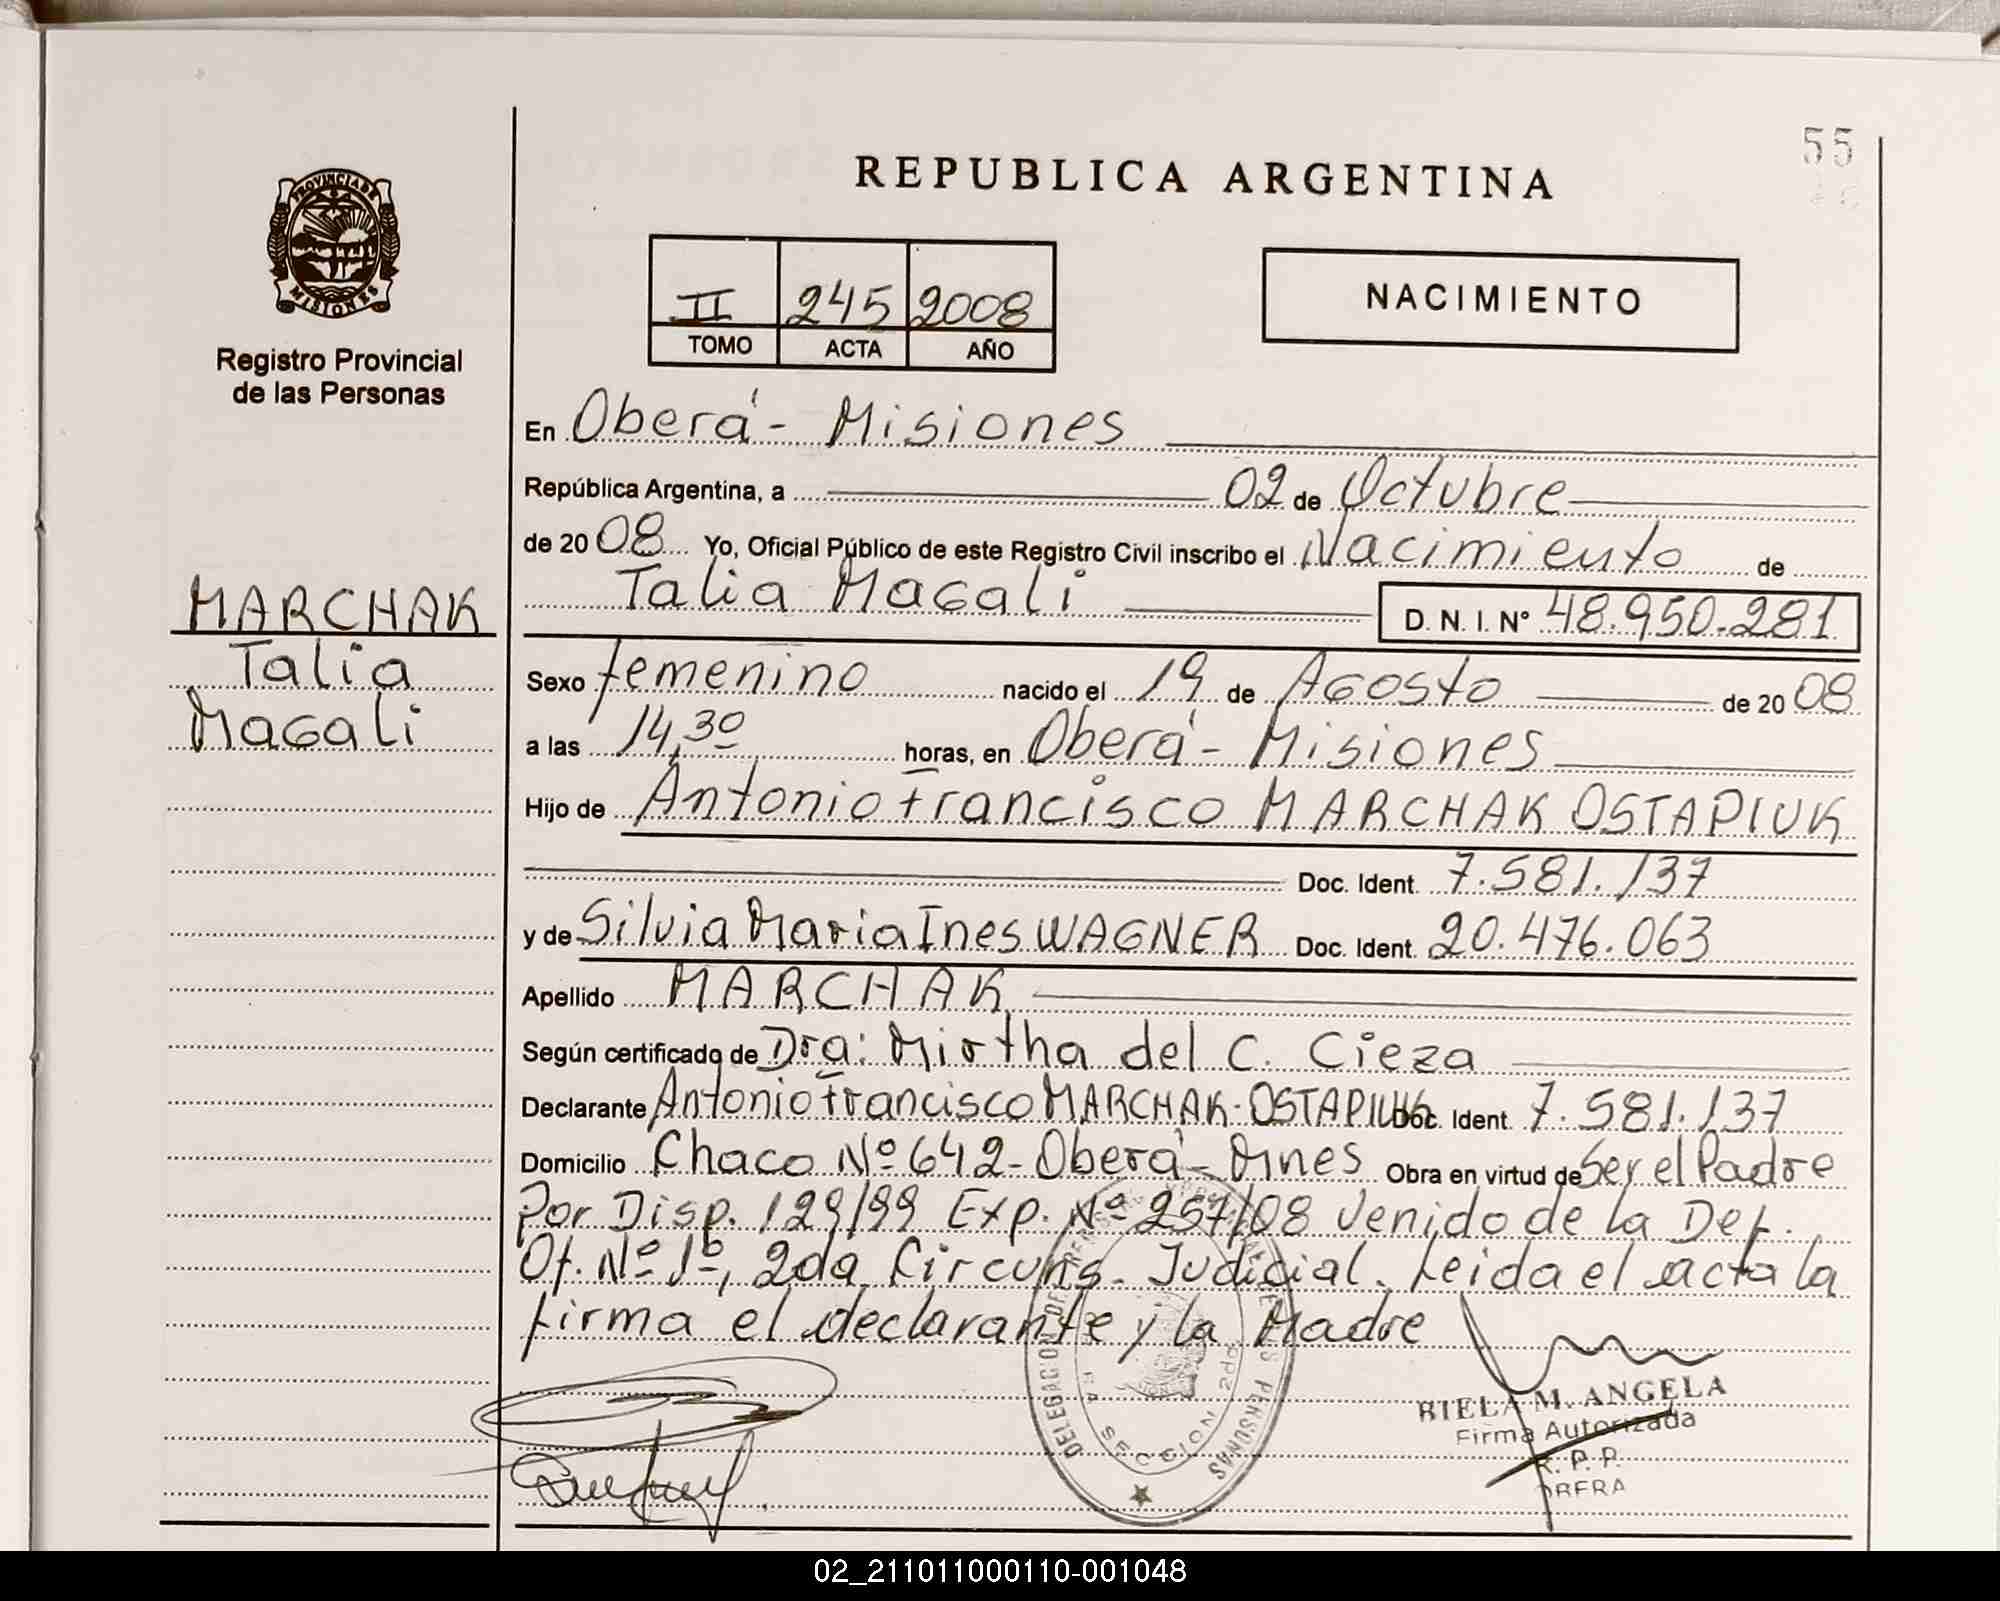 55
REPUBLICA ARGENTINA
PROVINCIA DE
MISIONES
Registro Provincial
de las Personas
II 245 2008
TOMO ACTA AÑO
NACIMIENTO
En Oberá - Misiones
República Argentina, a 02 de Octubre
de 2008 Yo, Oficial Público de este Registro Civil inscribo el Nacimiento de
Talia Magali D. N. I. Nº 48.950.281
MARCHAK
Talia
Magali
Sexo femenino nacido el 19 de Agosto de 2008
a las 14,30 horas, en Oberá - Misiones
Hijo de Antonio Francisco MARCHAK OSTAPIUK
Doc. Ident. 7.581.137
y de Silvia Maria Ines WAGNER Doc. Ident. 20.476.063
Apellido MARCHAK
Según certificado de Dra: Mirtha del C. Cieza
Declarante Antonio Francisco MARCHAK-OSTAPIUK Doc. Ident. 7.581.137
Domicilio Chaco Nº 642 - Oberá - Mnes Obra en virtud de Ser el Padre
Por Disp. 129/99 Exp. Nº 257/08 Venido de la Def.
Of. Nº 1º, 2da Circuns. Judicial. Leida el acta la
firma el declarante y la Madre
DELEGACION DE PERSONAS
SECCION 2da
BIELA M. ANGELA
Firma Autorizada
R. P. P.
OBERA
02_211011000110-001048